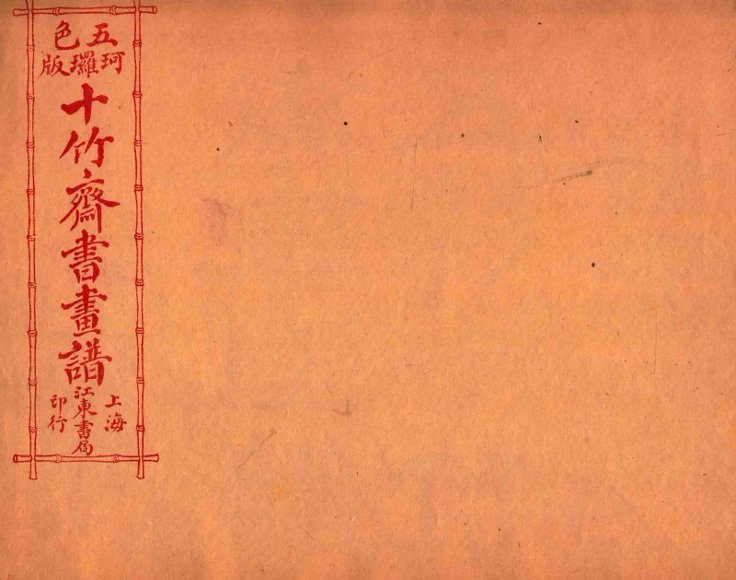 五色
珂瓓版
十竹齋書畫譜
上海
江東書局
印行